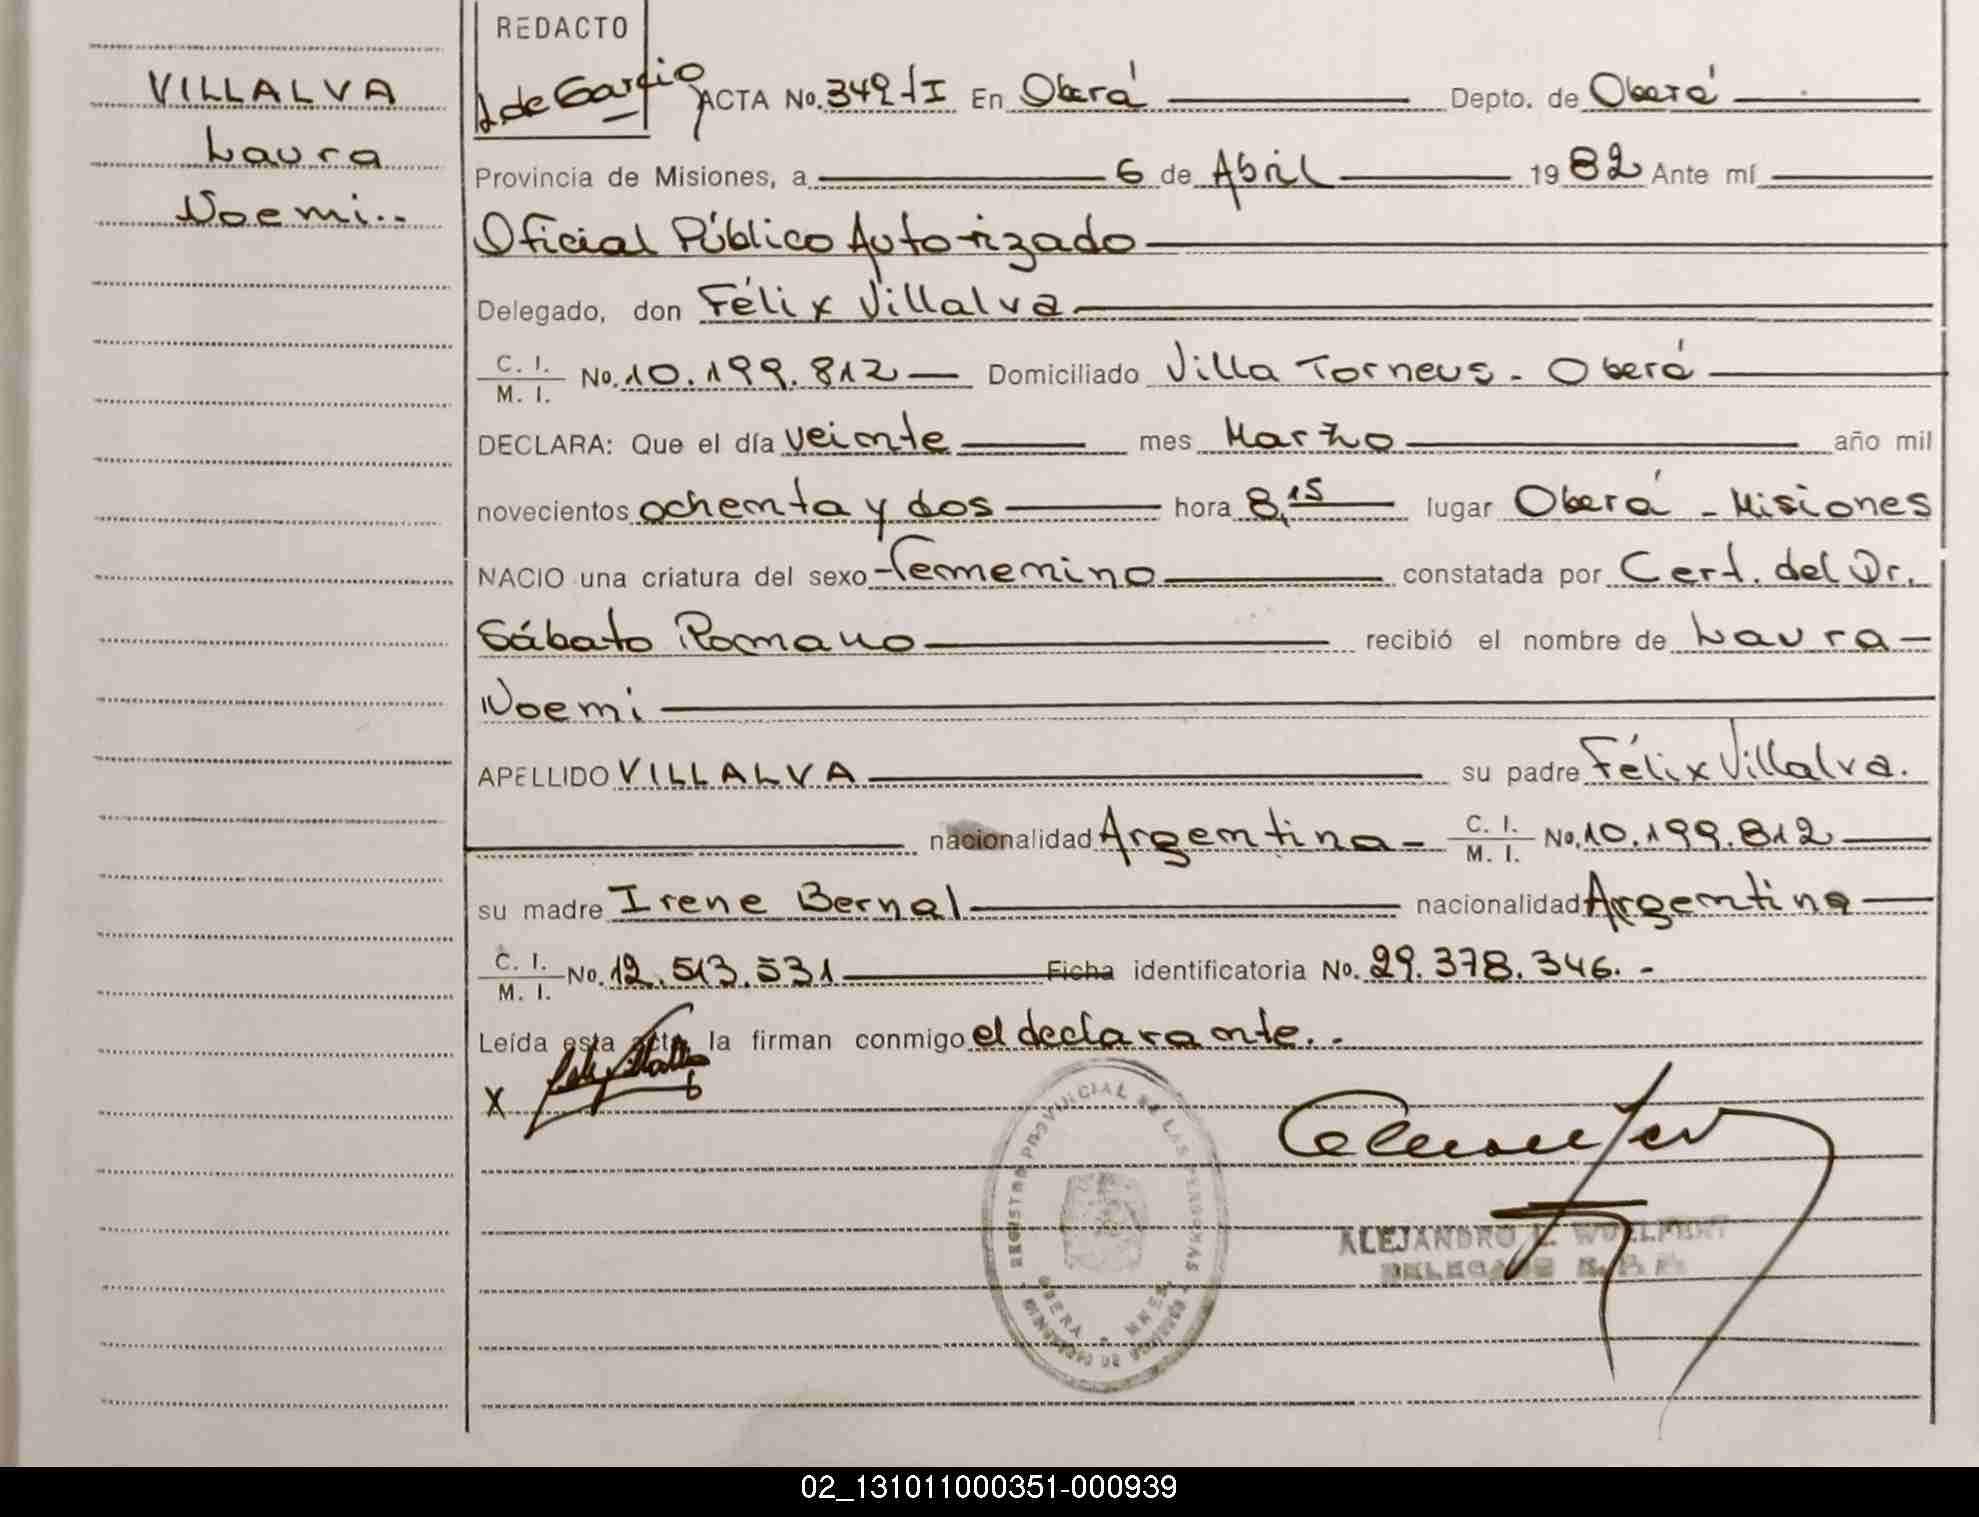 VILLALVA
Laura
Noemi..
REDACTO
L de Garcia
ACTA No. 349-I En Oberá Depto. de Oberá
Provincia de Misiones, a 6 de Abril 1982 Ante mí
Oficial Público Autorizado
Delegado, don Félix Villalva
C. I. / M. I. No. 10.199.812 Domiciliado Villa Torneus - Oberá
DECLARA: Que el día veinte mes Marzo año mil
novecientos ochenta y dos hora 8,15 lugar Oberá - Misiones
NACIO una criatura del sexo femenino constatada por Cert. del Dr.
Sábato Romano recibió el nombre de Laura
Noemi
APELLIDO VILLALVA su padre Félix Villalva.
nacionalidad Argentina - C. I. / M. I. No. 10.199.812
su madre Irene Bernal nacionalidad Argentina
C. I. / M. I. No. 12.513.531 Ficha identificatoria No. 29.378.346. -
Leída esta acta la firman conmigo el declarante. -
X
REGISTRO PROVINCIAL DE LAS PERSONAS
OBERA MNES.
MINISTERIO DE GOBIERNO
ALEJANDRO WUELFERT
DELEGADO R. P. P.
02_131011000351-000939